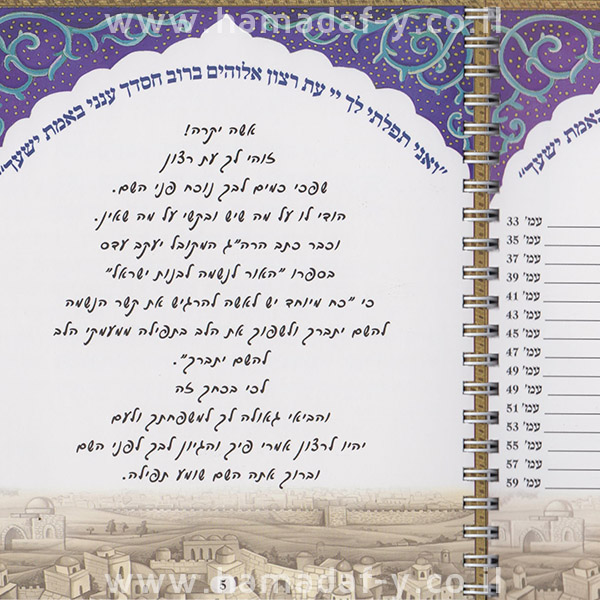 www.hamadaf-y.co.il
"ואני תפלתי לך יי עת רצון אלוהים ברוב חסדך ענני באמת ישעך"
אשה יקרה!
זוהי לך עת רצון
שפכי כמים לבך נוכח פני השם.
הודי לו על מה שיש ובקשי על מה שאין.
וכבר כתב הרה"ג המקובל יעקב עדס
בספרו "האור לנשמה לבנות ישראל"
כי "כח מיוחד יש לאשה להרגיש את קשר הנשמה
להשם יתברך ולשפוך את הלב בתפילה ממעמקי הלב
להשם יתברך".
לכי בכחך זה
והביאי גאולה לך למשפחתך ולעם
יהיו לרצון אמרי פיך והגיון לבך לפני השם
וברוך אתה השם שומע תפילה.
5
באמת ישעך"
עמ' 33
עמ' 35
עמ' 37
עמ' 39
עמ' 41
עמ' 43
עמ' 45
עמ' 47
עמ' 49
עמ' 49
עמ' 51
עמ' 53
עמ' 55
עמ' 57
עמ' 59
www.hamadaf-y.co.il